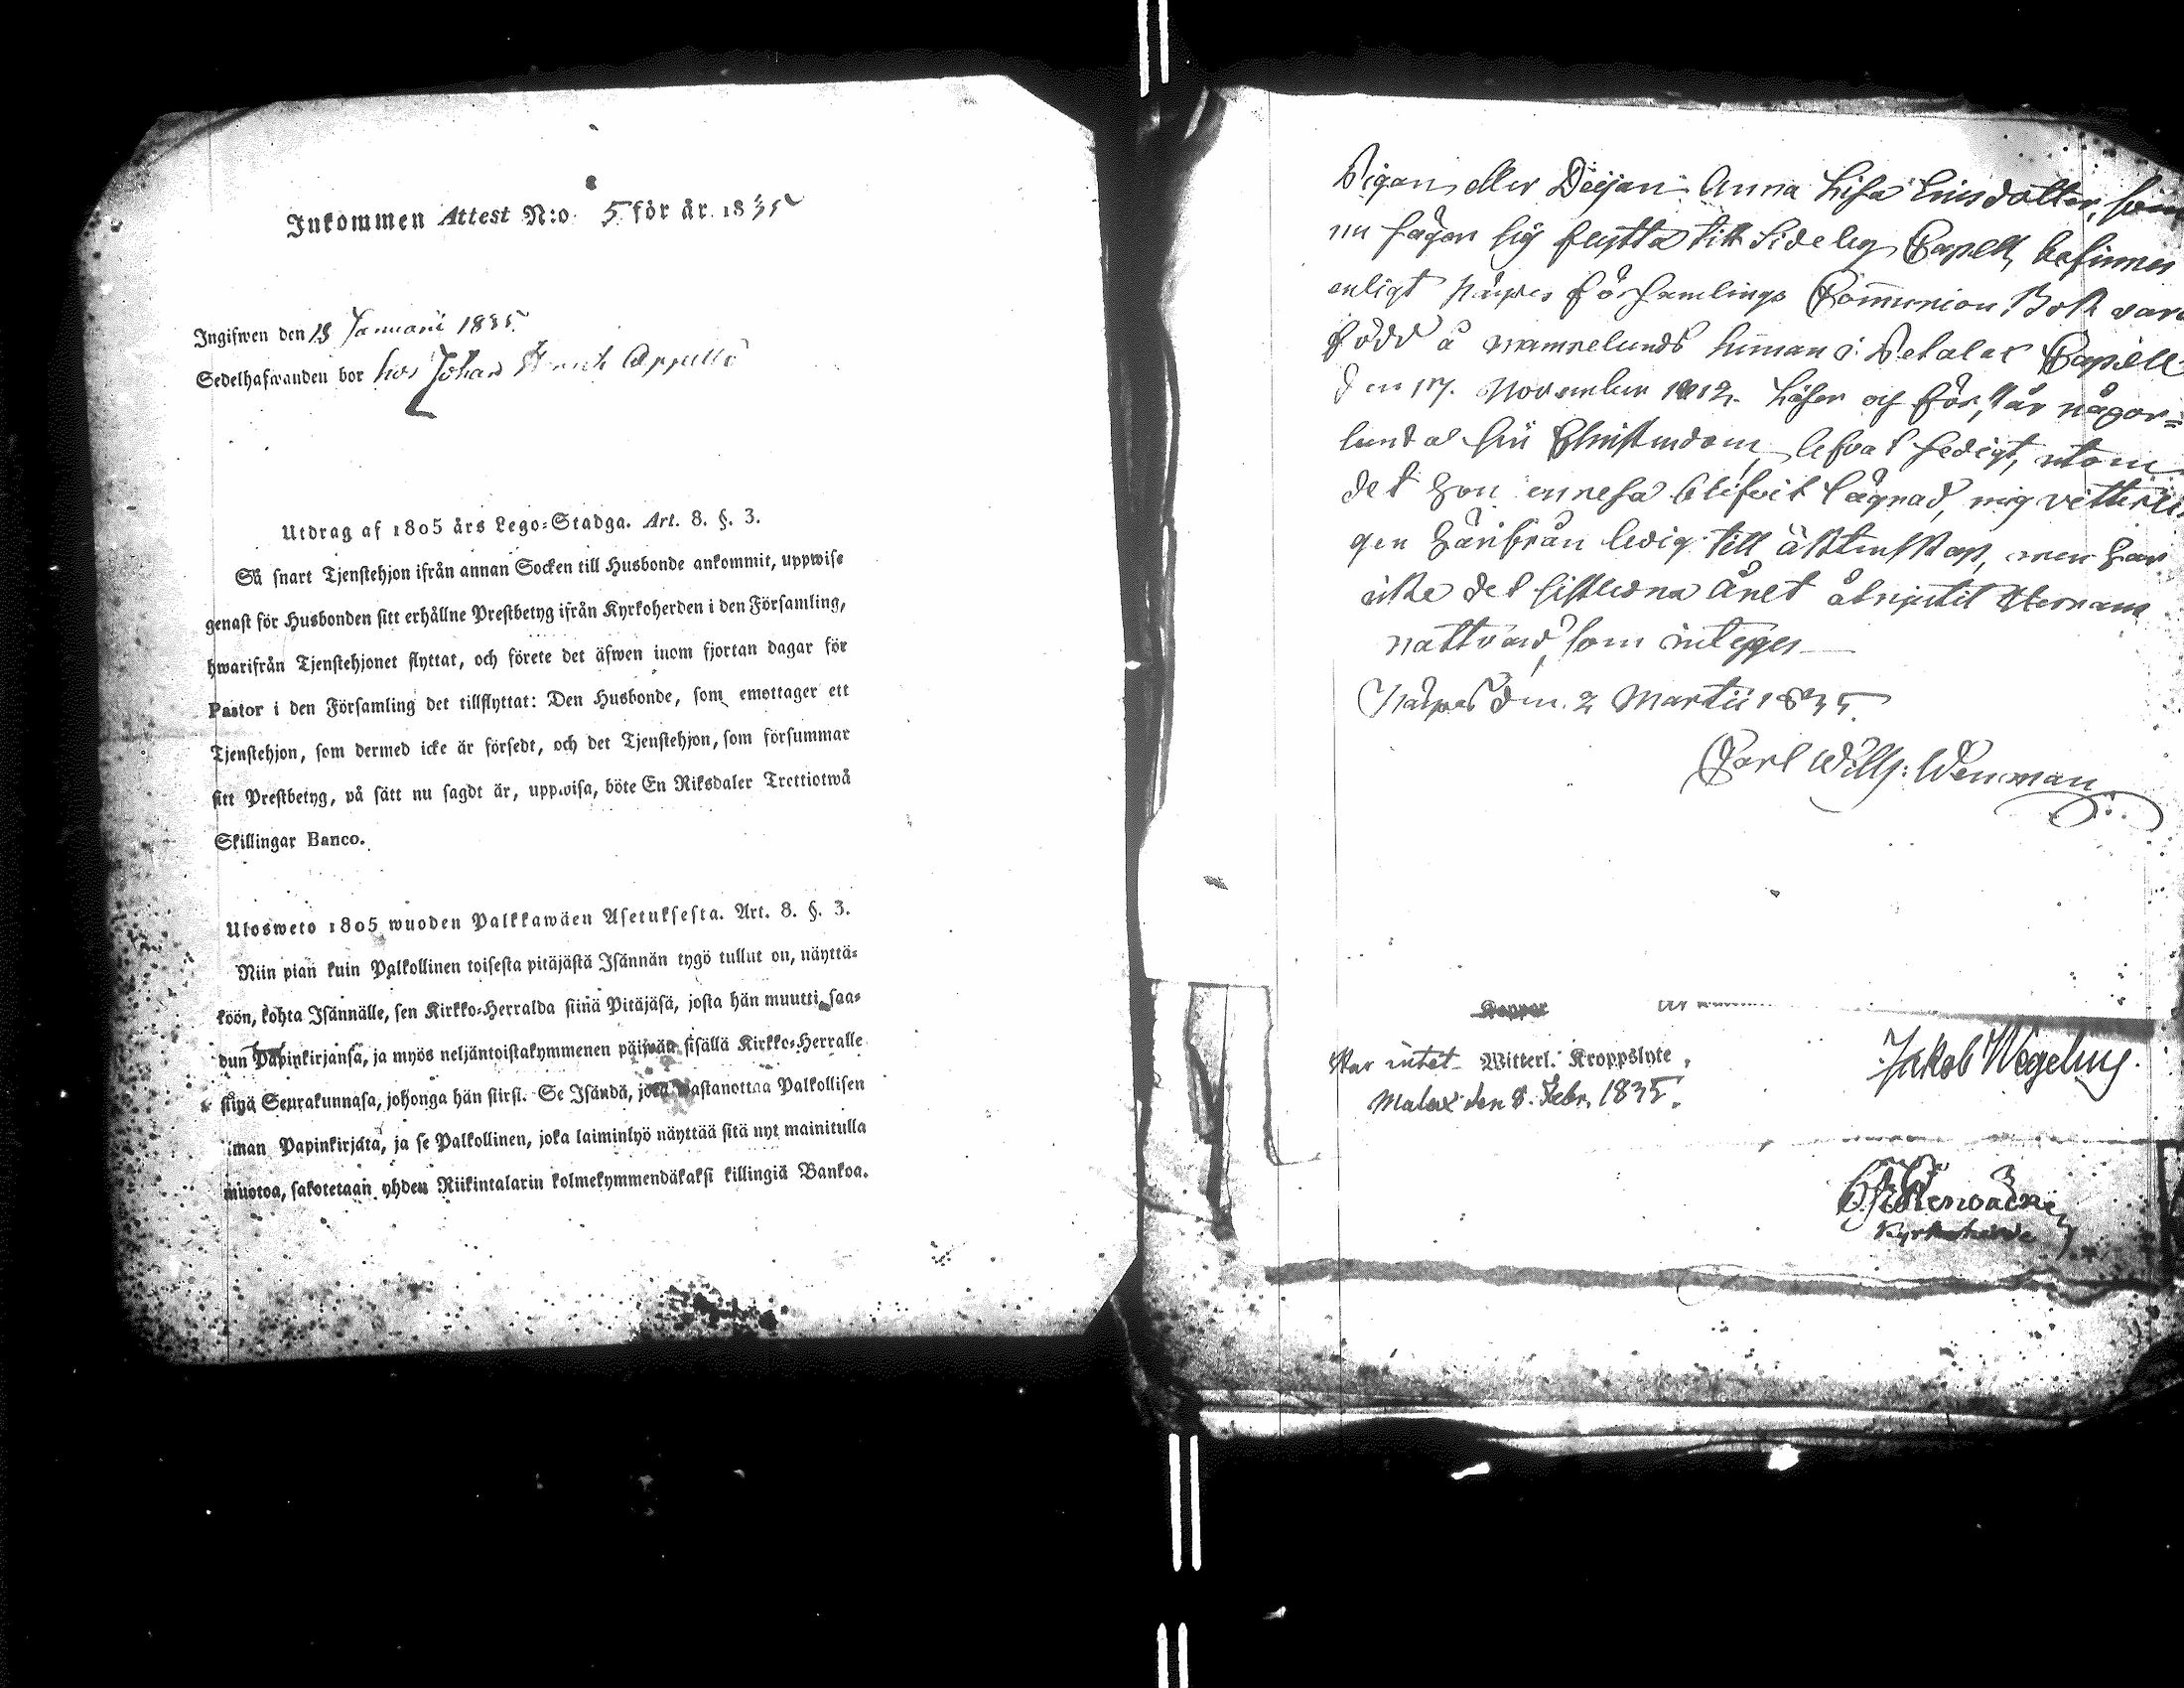 Inkommen Attest N:o 5 för år 1835
Ingifwen den 13 Januari 1835
Sedelhafwanden bor hos Johan
Utdrag af 1805 års Lego-Stadga. Art. 8. §. 3.
Så snart Tjenstehjon ifrån annan Socken till Husbonde ankommit, uppwise
genast för Husbonden sitt erhållne Prestbetyg ifrån Kyrkoherden i den Församling,
hwarifrån Tjenstehjonet flyttat, och förete det äfwen inom fjortan dagar för
Pastor i den Församling det tillflyttat: Den Husbonde, som emottager ett
Tjenstehjon, som dermed icke är försedt, och det Tjenstehjon, som försummar
sitt Prestbetyg, på sätt nu sagdt är, uppwisa, böte En Riksdaler Trettiotwå
Skillingar Banco.
Ulosweto 1805 wuoden Palkkawäen Asetuksesta. Art. 8. §. 3.
Niin pian kuin Palkollinen toisesta pitäjästä Isännän tygö tullut on, näyttä-
köön, kohta Isännälle, sen Kirkko-Herralda siinä Pitäjäsä, josta hän muutti, saa-
dun Papinkirjansa, ja myös neljäntoistakymmenen päiwän sisällä Kirkko-Herralle
siinä Seurakunnasa, johonga hän siirsi. Se Isändä, joka wastanottaa Palkollisen
ilman Papinkirjata, ja se Palkollinen, joka laiminlyö näyttää sitä nyt mainitulla
muotoa, sakotetaan yhden Riikintalarin kolmekymmendäkaksi killingiä Bankoa.
Pigan eller Deijan Anna Lisa Ericsdotter, som
nu säger sig flytta till Sideby Capell, befinnes
enligt Närpes Församlings Communion Bok vara
född å hemman i Petalax Capell
den 17. November 1812. Läser och förstår någor-
lunda sin Christendom, lefvat sedigt, utom
det hon blifvit lägrad, mig vetterli-
gen härifrån ledig till äktenskap, men har
icke det sistledna året åtnjutit Herrans
nattvard, som intygas
Närpes den 2 Martii 1835.
Carl Wilh: Wenman
Koppor
Har intet Witterl. Kroppslyte.
Malax den 8. Febr. 1835.
Jakob Wegelius.
Kyrkoherde